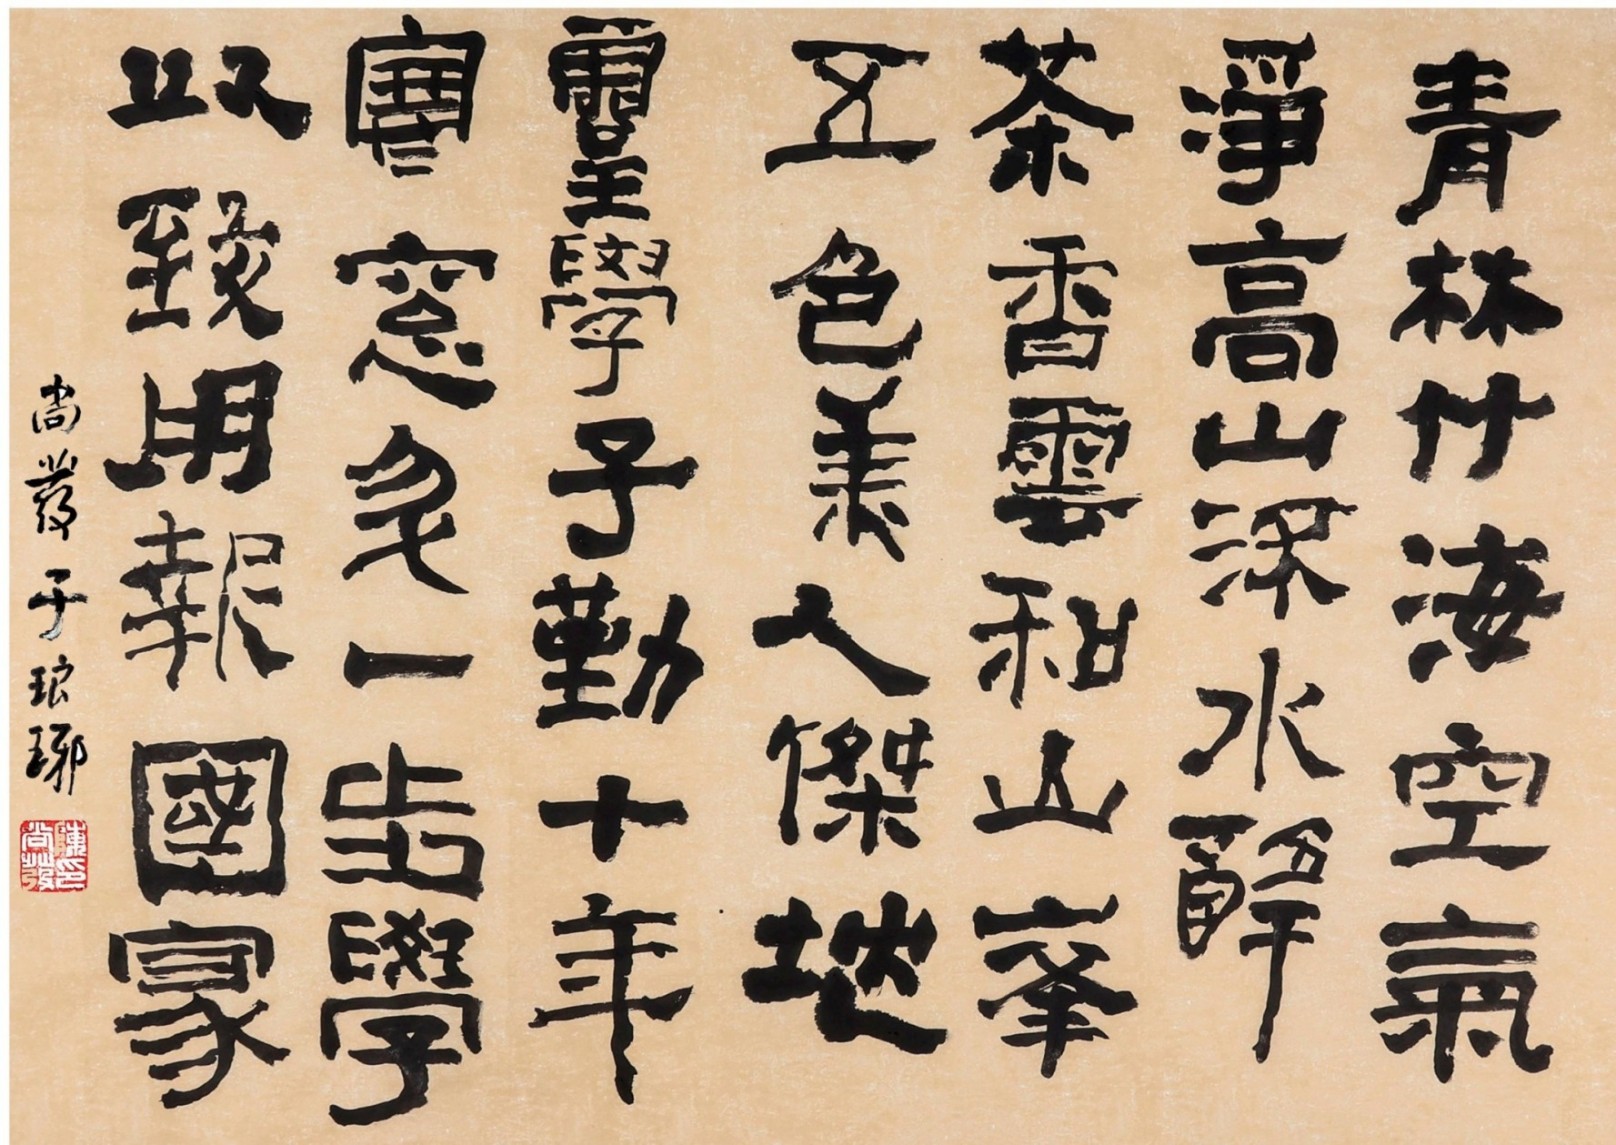 青林竹海空氣
淨高山深水靜
茶香雲和山峯
五色美人傑地
靈學子勤十年
寒窓多一步學
以致用報國家
尚發于琅琊
陳尚發印